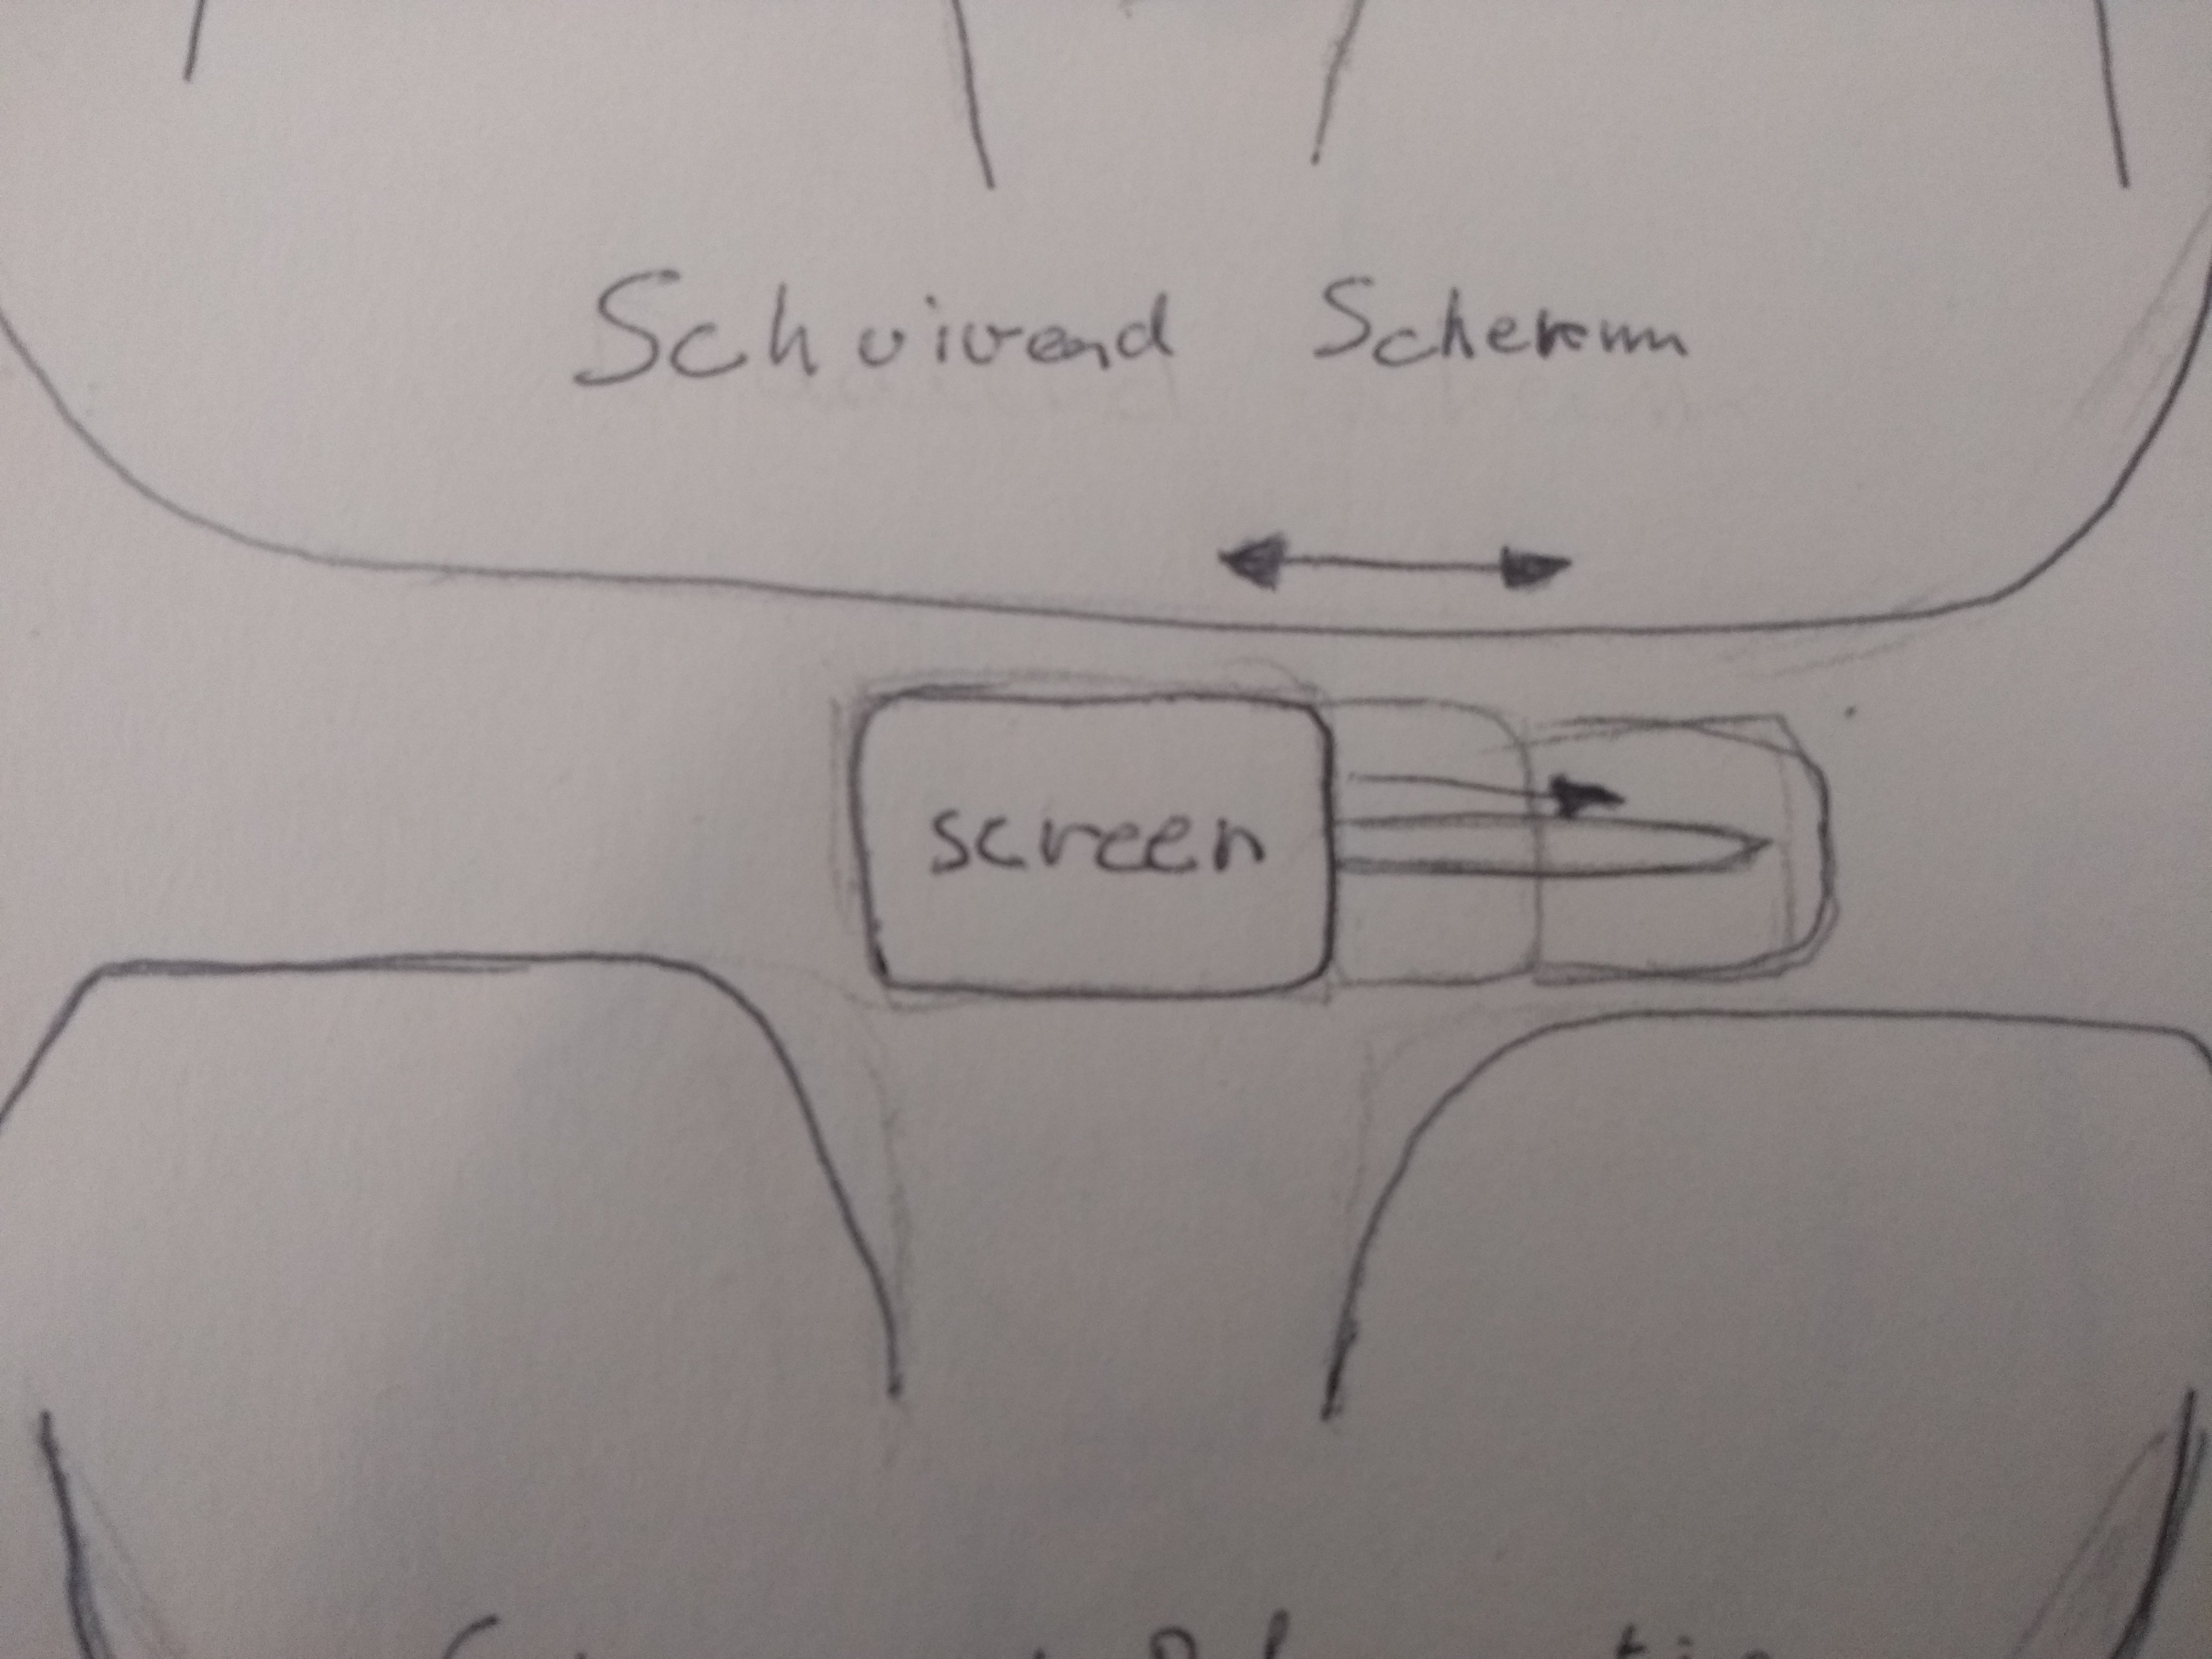 Schuivend Scherm
screen